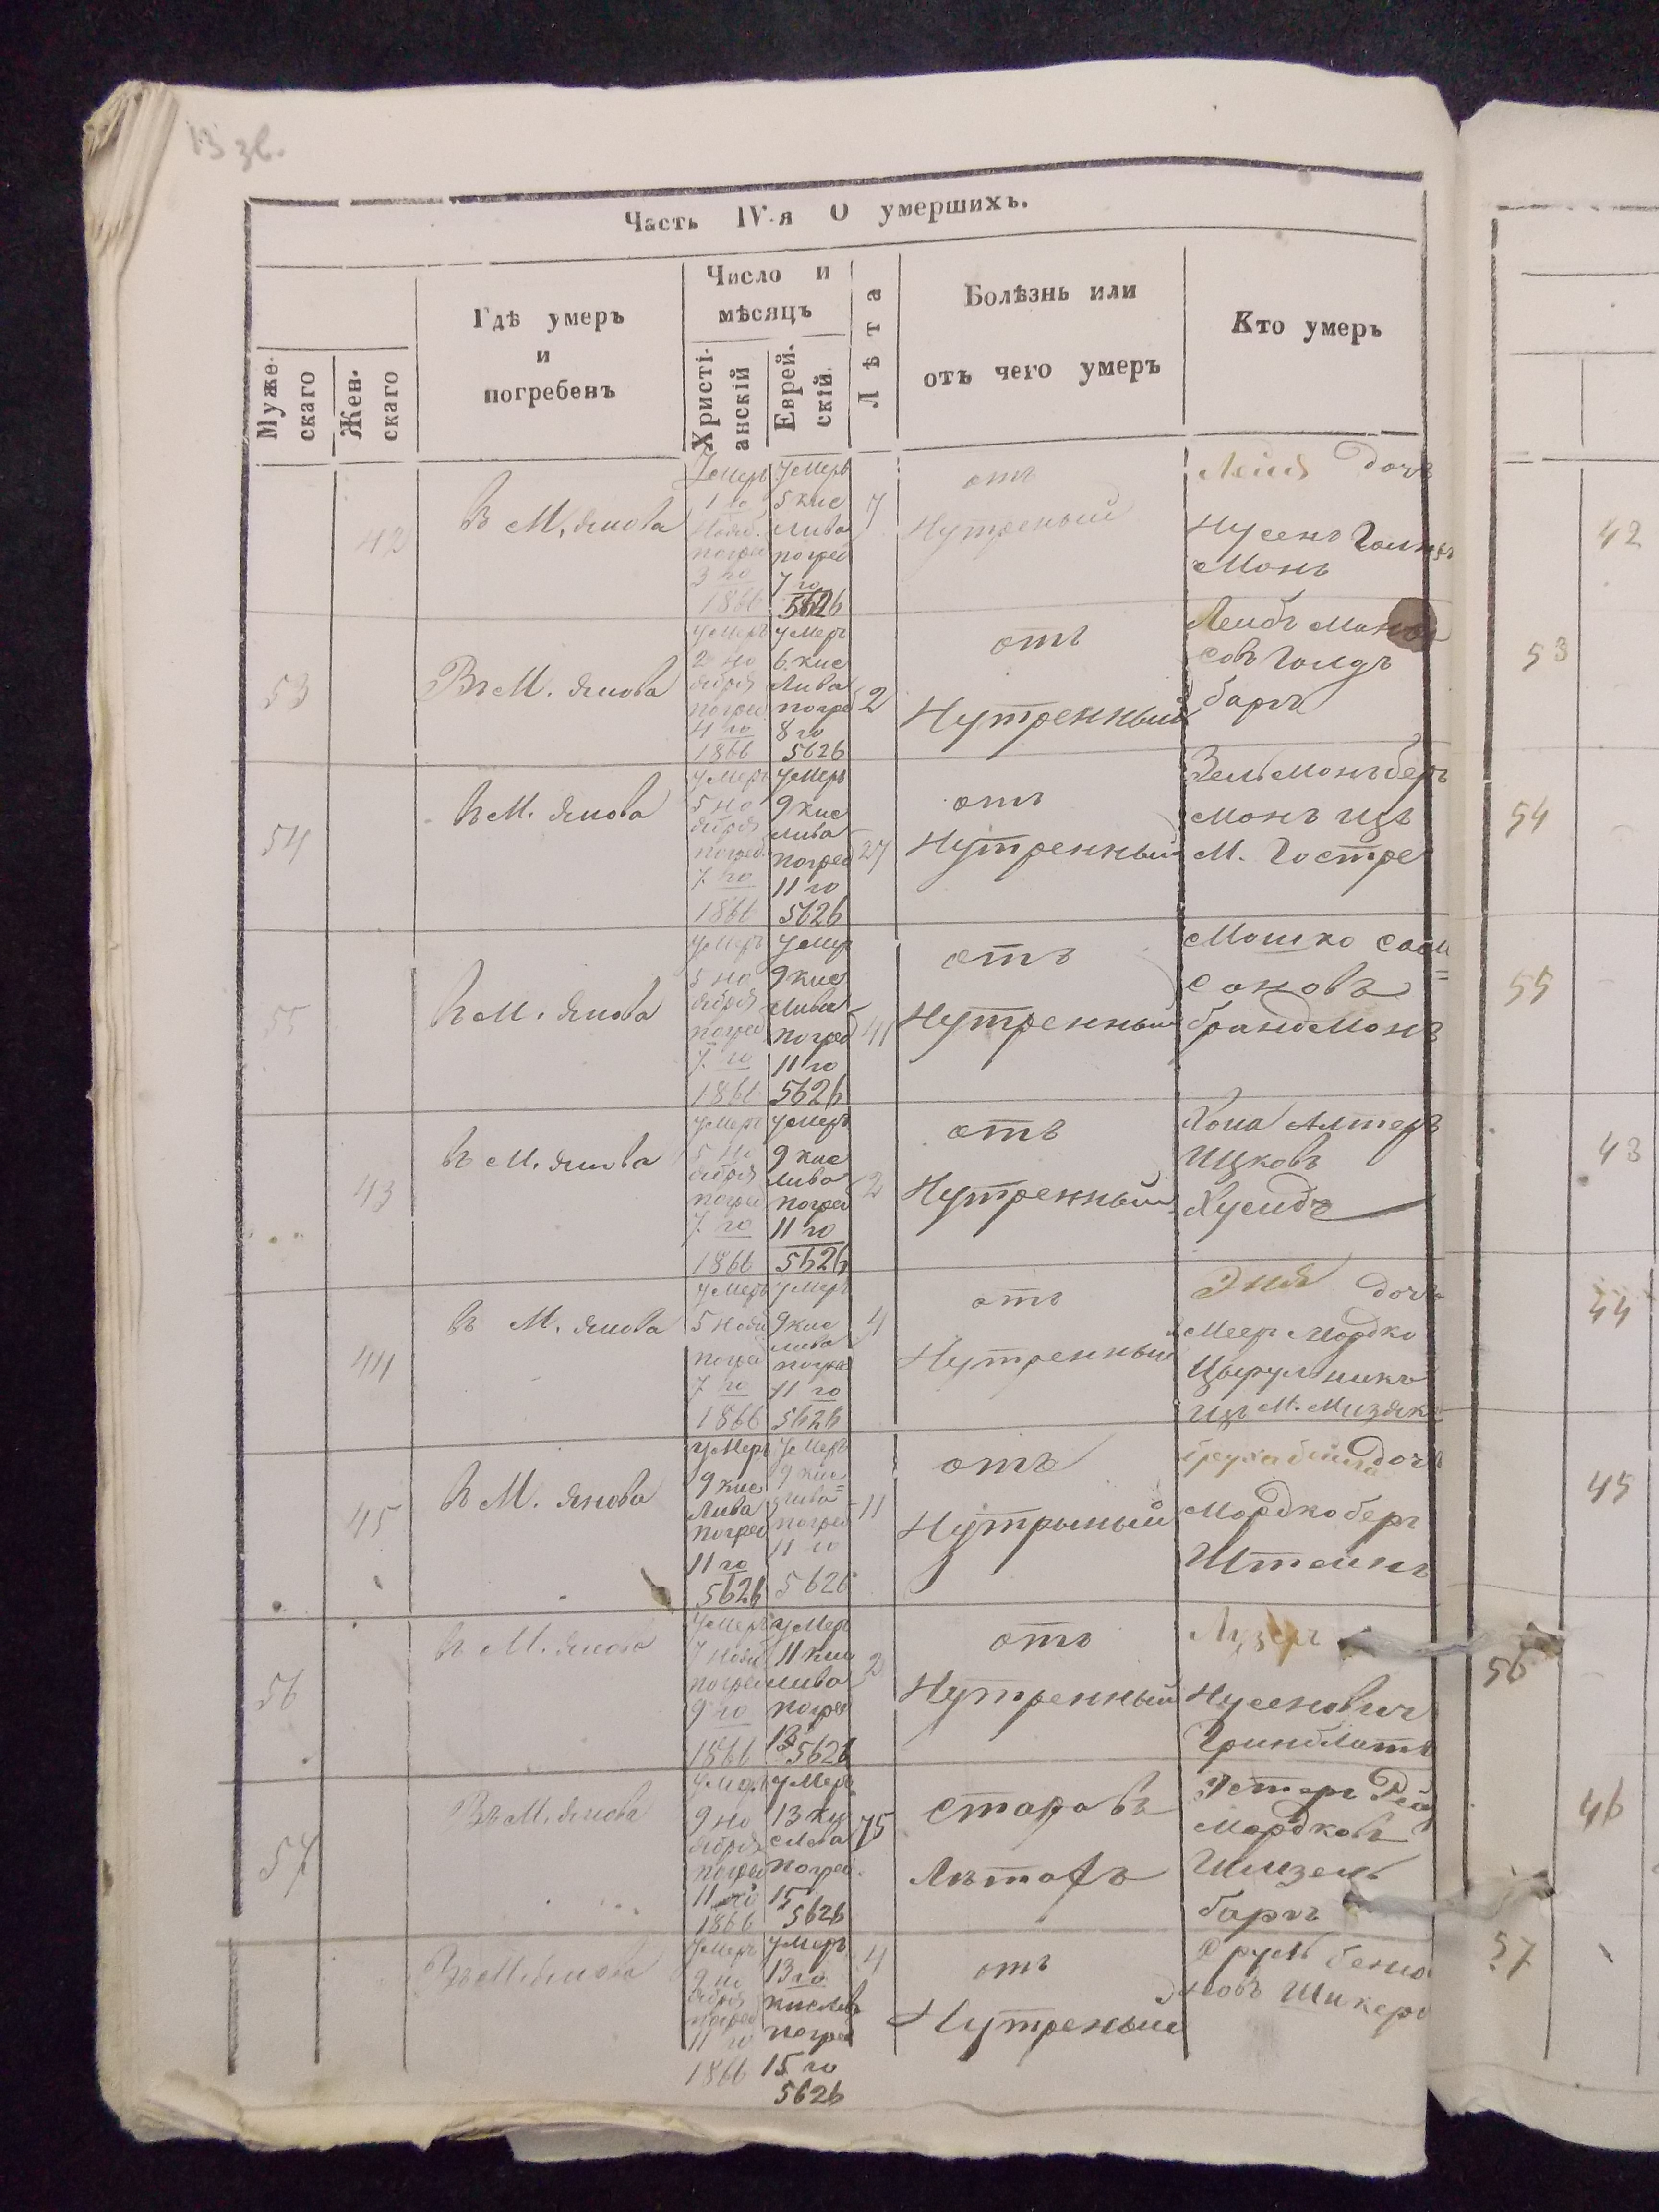 13 зв.
Часть IV-я О умершихъ.
Муже-
скаго
Жен-
скаго
Гдѣ умеръ
и
погребенъ
Число и
мѣсяцъ
Христі-
анскій
Еврей-
скій.
Лѣта
Болѣзнь или
отъ чего умеръ
Кто умеръ
42
В М, Янова
Умеръ
1 го
Нояб.
погреб
3 го
1866
Умеръ
5 кис
лива
погреб
7 го
5626
7
отъ
Нутреный
Лейя дочь
Нусенъ
монъ
53
Въ М. Янова
Умеръ
2 но
ября
погреб
4 го
1866
Умеръ
6 кис
лива
погре
8 го
5626
2
отъ
Нутренный
Лейбъ
совъ Голд
барг
54
Въ М. Янова
Умеръ
5 но
ября
погреб
7. го
1866
Умеръ
9 кис
лива
погреб
11 го
5626
27
отъ
Нутренный
Зельмонъ бер
монъ изъ
М. Гостре
55
Въ М. Янова
Умеръ
5 но
ября
погреб
7. го
1866
Умер
9 кис
лива
погреб
11 го
5626
41
отъ
Нутренный
Мошко Сам
соновъ
брандмонъ
43
Въ М. Янова
Умеръ
5 но
ября
погреб
7. го
1866
Умеръ
9 кис
лива
погреб
11 го
5626
2
отъ
Нутренный
Алтеръ
Ицковъ
Хусидъ
44
Въ М. Янова
Умеръ
5 нояб
погреб
7 го
1866
Умеръ
9 кис
лива
погреб
11 го
5626
4
отъ
Нутренный
Эня дочь
Меер Мордко
Цырулникъ
изъ М. Мизяк
45
Въ М. Янова
Умеръ
9 кис
лива
погреб
11 го
5626
Умеръ
9 кис
лива
погреб
11 го
5626
11
отъ
Нутрыный
дочь
Мордко бер
Штеинъ
56
Въ М. Янова
Умеръ
7 нояб
погреб
9 го
1866
Умеръ
11 кис
лива
погреб
13
5626
2
отъ
Нутренный
Лузер
Нусенович
Гринблатъ
57
Въ М. Янова
Умер
9 но
ября
погреб
11 го
1866
Умеръ
13 ки
слова
погреб.
15
5626
75
старовъ
Лѣтовъ
Эстер Рей
Мордковъ
барг
Въ М. Янова
Умеръ
9 но
ября
погреб
11 го
1866
Умеръ
13 го
кислев
погреб
15 го
5626
4
отъ
Нутреный
Сруль бенио
новъ Шикер
42
53
54
55
43
44
45
56
46
57